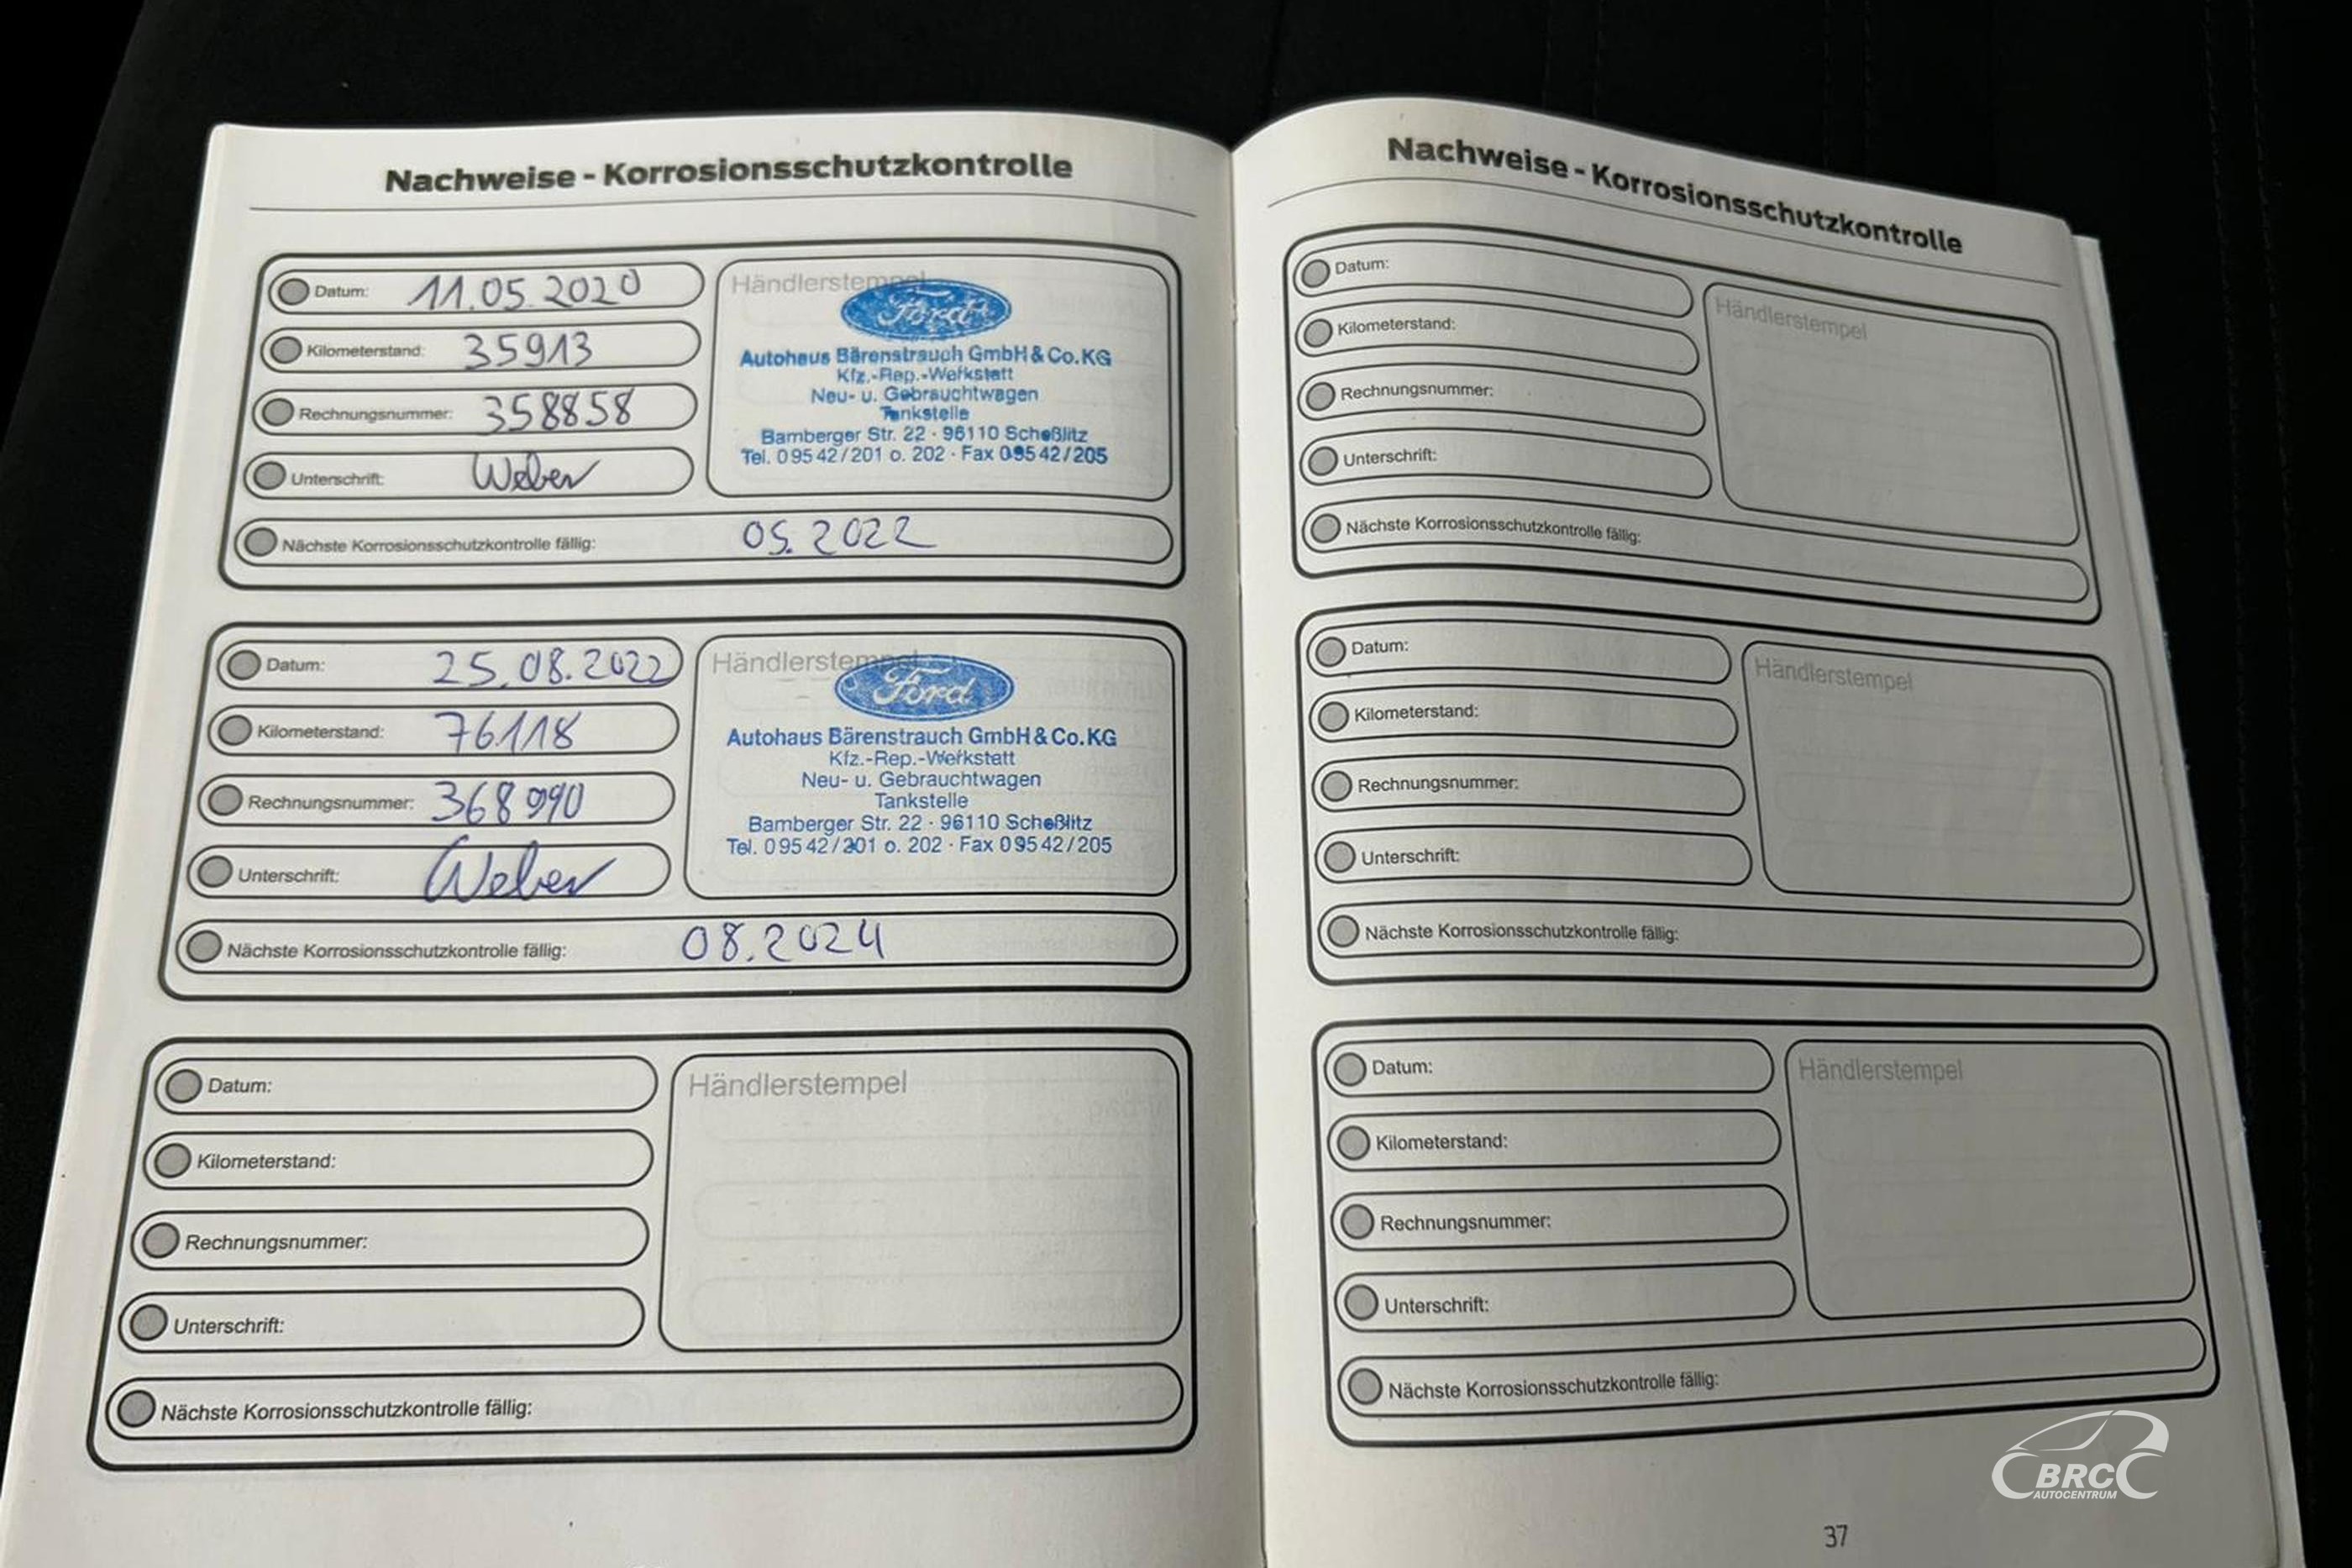 Nachweise - Korrosionsschutzkontrolle
Datum: 11.05.2020
Kilometerstand: 35913
Rechnungsnummer: 358858
Unterschrift: Weber
Händlerstempel
Ford
Autohaus Bärenstrauch GmbH & Co.KG
Kfz.-Rep.-Werkstatt
Neu- u. Gebrauchtwagen
Tankstelle
Bamberger Str. 22 · 96110 Scheßlitz
Tel. 09542/201 o. 202 · Fax 09542/205
Nächste Korrosionsschutzkontrolle fällig: 05.2022
Datum: 25.08.2022
Kilometerstand: 76118
Rechnungsnummer: 368990
Unterschrift: Weber
Händlerstempel
Ford
Autohaus Bärenstrauch GmbH & Co.KG
Kfz.-Rep.-Werkstatt
Neu- u. Gebrauchtwagen
Tankstelle
Bamberger Str. 22 · 96110 Scheßlitz
Tel. 09542/201 o. 202 · Fax 09542/205
Nächste Korrosionsschutzkontrolle fällig: 08.2024
Datum:
Kilometerstand:
Rechnungsnummer:
Unterschrift:
Händlerstempel
Nächste Korrosionsschutzkontrolle fällig:
Nachweise - Korrosionsschutzkontrolle
Datum:
Kilometerstand:
Rechnungsnummer:
Unterschrift:
Händlerstempel
Nächste Korrosionsschutzkontrolle fällig:
Datum:
Kilometerstand:
Rechnungsnummer:
Unterschrift:
Händlerstempel
Nächste Korrosionsschutzkontrolle fällig:
Datum:
Kilometerstand:
Rechnungsnummer:
Unterschrift:
Händlerstempel
Nächste Korrosionsschutzkontrolle fällig:
37
BRC
AUTOCENTRUM